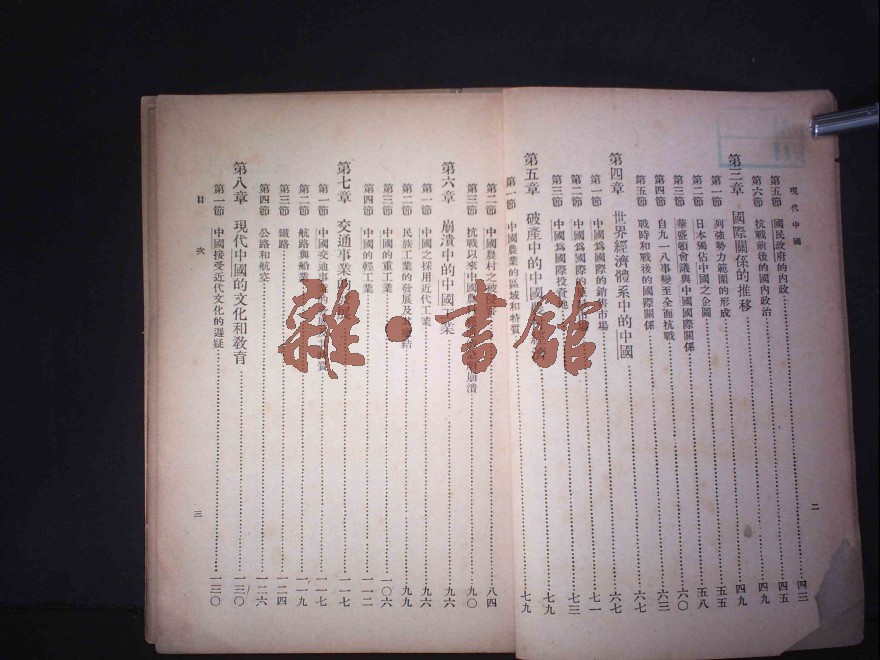 現代中國
第五節 國民政府的內政 四三
第六節 抗戰前後的國內政治 四五
第三章 國際關係的推移 四九
第一節 列強勢力範圍的形成 四九
第二節 日本獨佔中國之企圖 五五
第三節 華盛頓會議與中國國際關係 五八
第四節 自九一八事變至全面抗戰 六〇
第五節 戰時和戰後的國際關係 六三
第四章 世界經濟體系中的中國 六七
第一節 中國爲國際的銷售市場 六七
第二節 中國爲國際的 七一
第三節 中國爲國際投資 七三
第五章 破產中的中國 七九
第一節 中國農業的區域和特質 七九
二
第二節 中國農村之 八四
第三節 抗戰以來中國農 崩潰 九〇
第六章 崩潰中的中國 業 九六
第一節 中國之採用近代工業 九六
第二節 民族工業的發展及 結 九九
第三節 中國的重工業 一〇六
第四節 中國的輕工業 一一二
第七章 交通事業 一一七
第一節 中國交通事 一一七
第二節 航路與船業 一一九
第三節 鐵路 一二四
第四節 公路和航空 一二六
第八章 現代中國的文化和敎育 一三〇
第一節 中國接受近代文化的遲疑 一三〇
目次
三
雜·書館